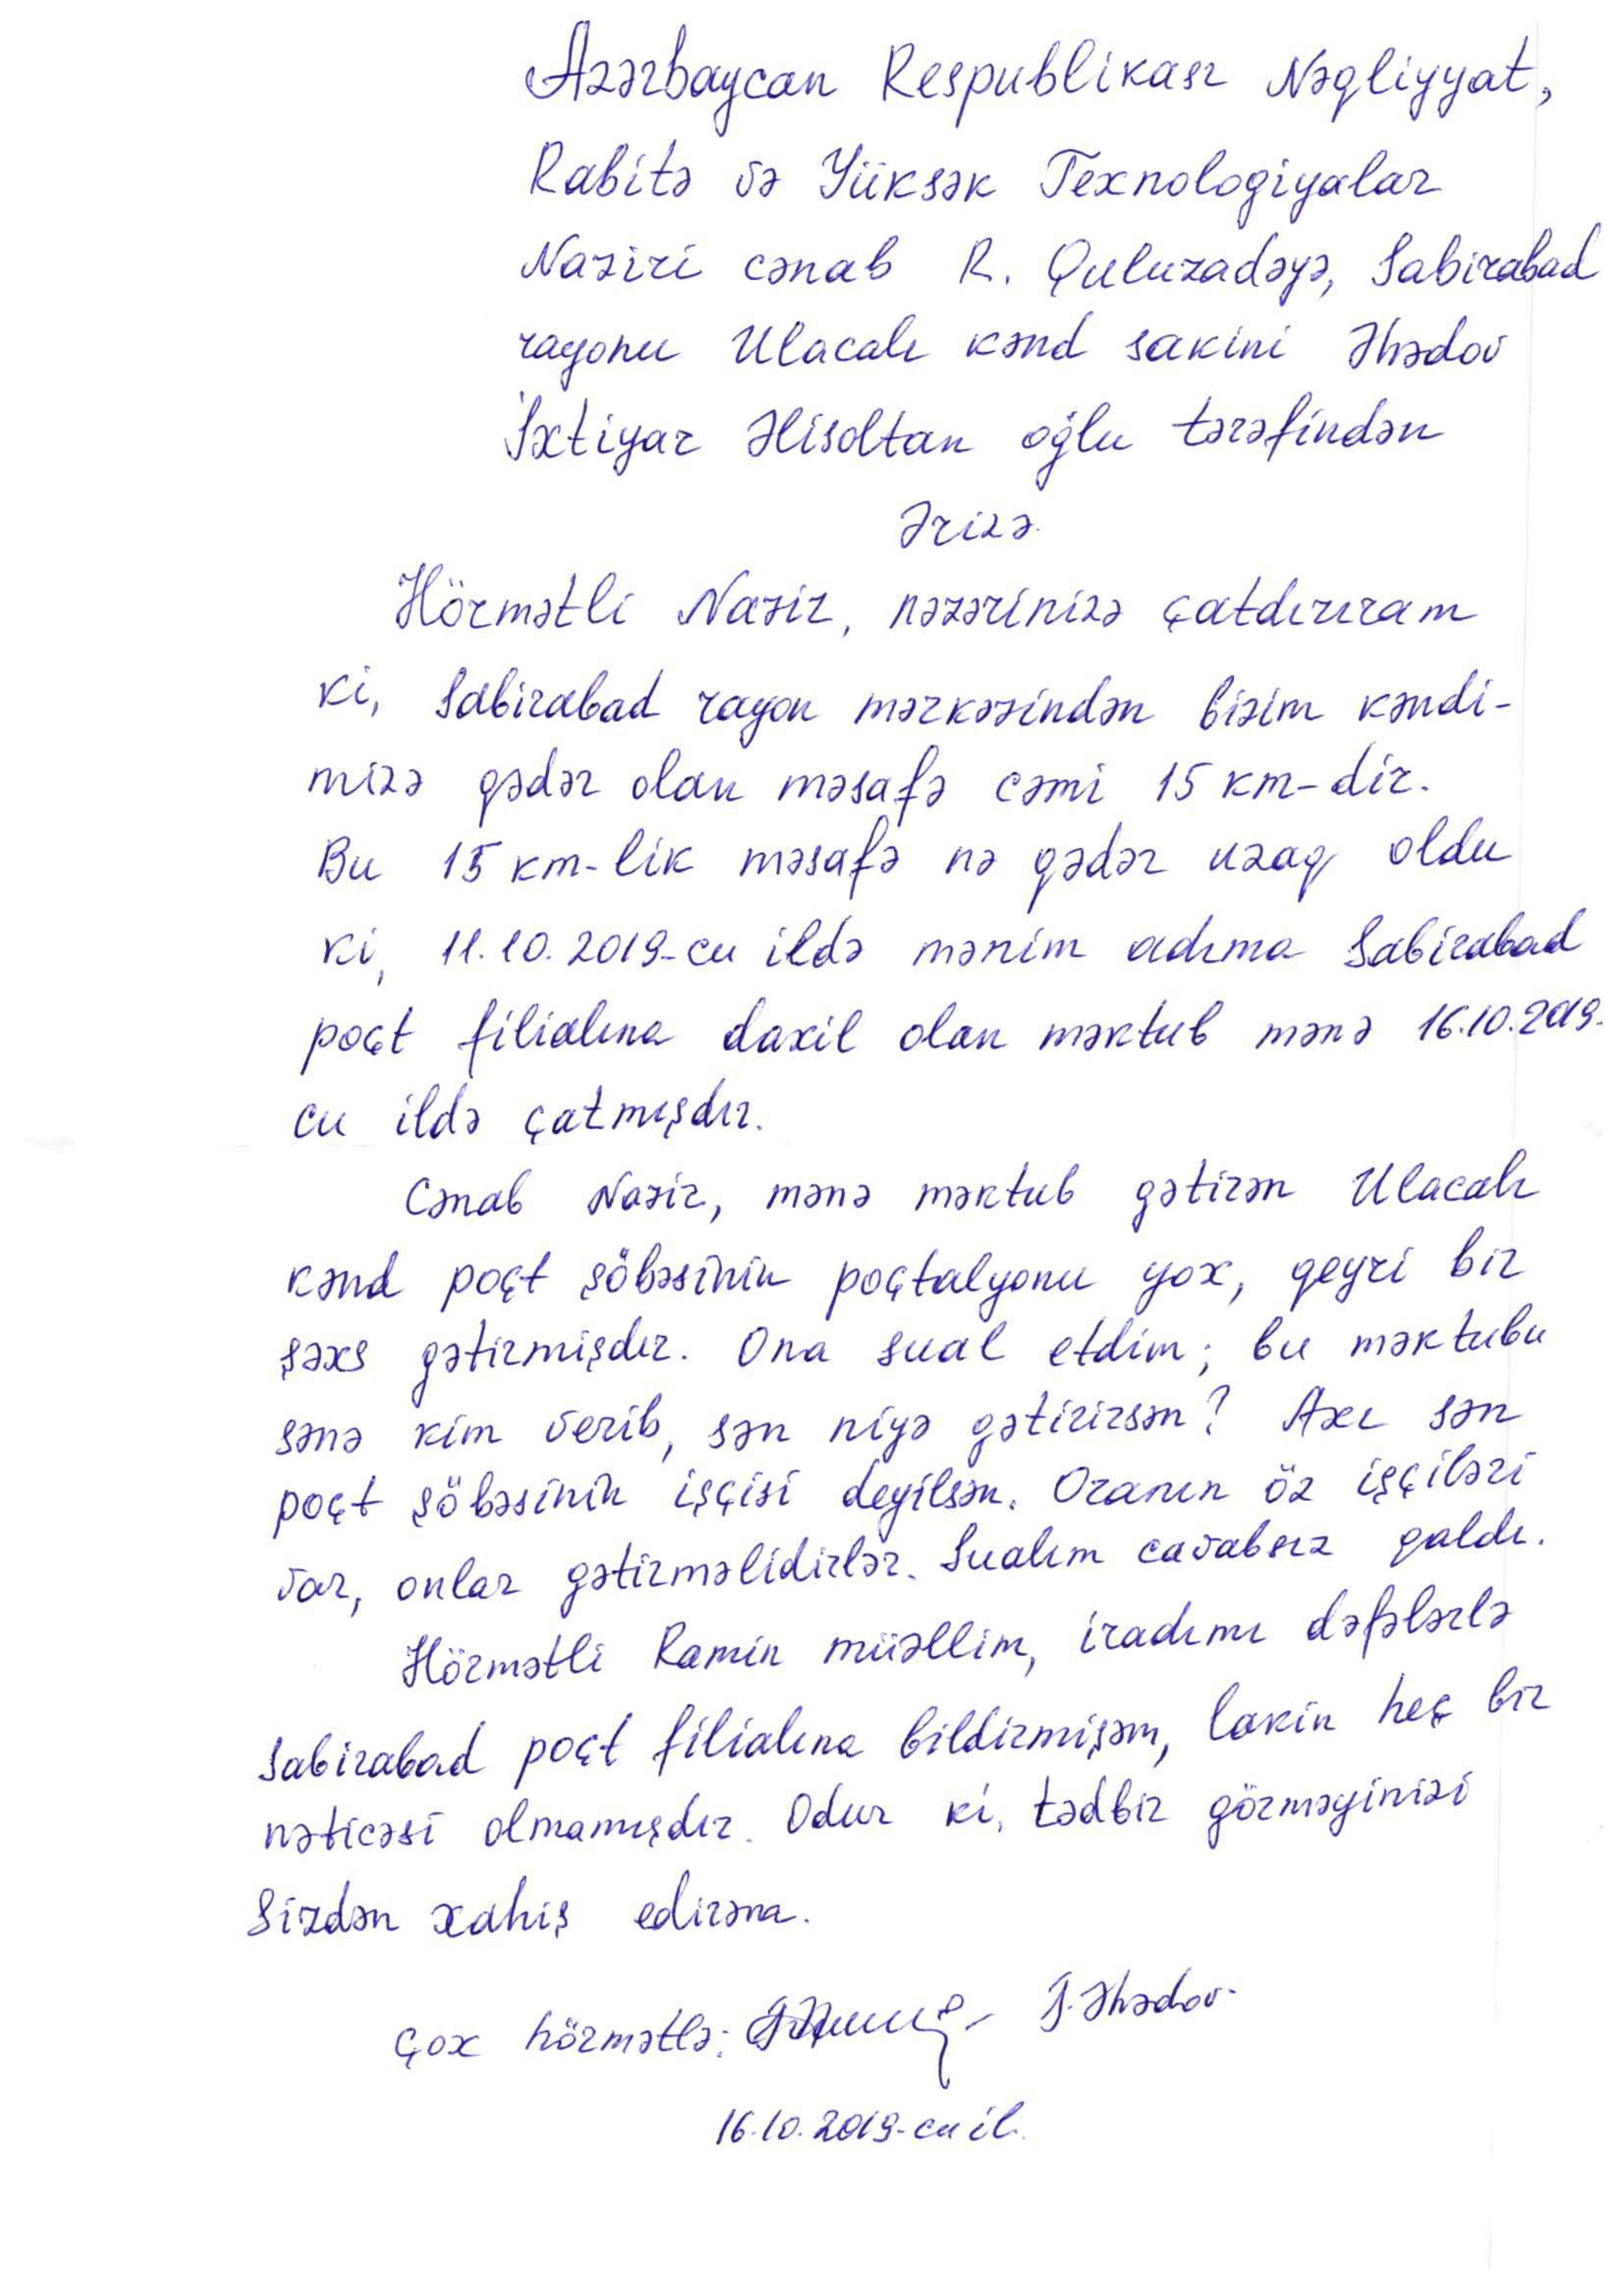 Azərbaycan Respublikası Nəqliyyat,
Rabitə və Yüksək Texnologiyalar
Naziri cənab R. Quluzadəyə, Sabirabad
rayonu Ulacalı kənd sakini Əhədov
İxtiyar Əlisoltan oğlu tərəfindən
Ərizə.
Hörmətli Nazir, nəzərinizə çatdırıram
ki, Sabirabad rayon mərkəzindən bizim kəndi-
mizə qədər olan məsafə cəmi 15 km-dir.
Bu 15 km-lik məsafə nə qədər uzaq oldu
ki, 11.10.2019-cu ildə mənim adıma Sabirabad
poçt filialına daxil olan məktub mənə 16.10.2019-
cu ildə çatmışdır.
Cənab Nazir, mənə məktub gətirən Ulacalı
kənd poçt şöbəsinin poçtalyonu yox, qeyri bir
şəxs gətirmişdir. Ona sual etdim; bu məktubu
sənə kim verib, sən niyə gətirirsən? Axı sən
poçt şöbəsinin işçisi deyilsən. Oranın öz işçiləri
var, onlar gətirməlidirlər. Sualım cavabsız qaldı.
Hörmətli Ramin müəllim, iradımı dəfələrlə
Sabirabad poçt filialına bildirmişəm, lakin heç bir
nəticəsi olmamışdır. Odur ki, tədbir görməyinizi
Sizdən xahiş edirəm.
Çox hörmətlə: İ. Əhədov.
16.10.2019-cu il.